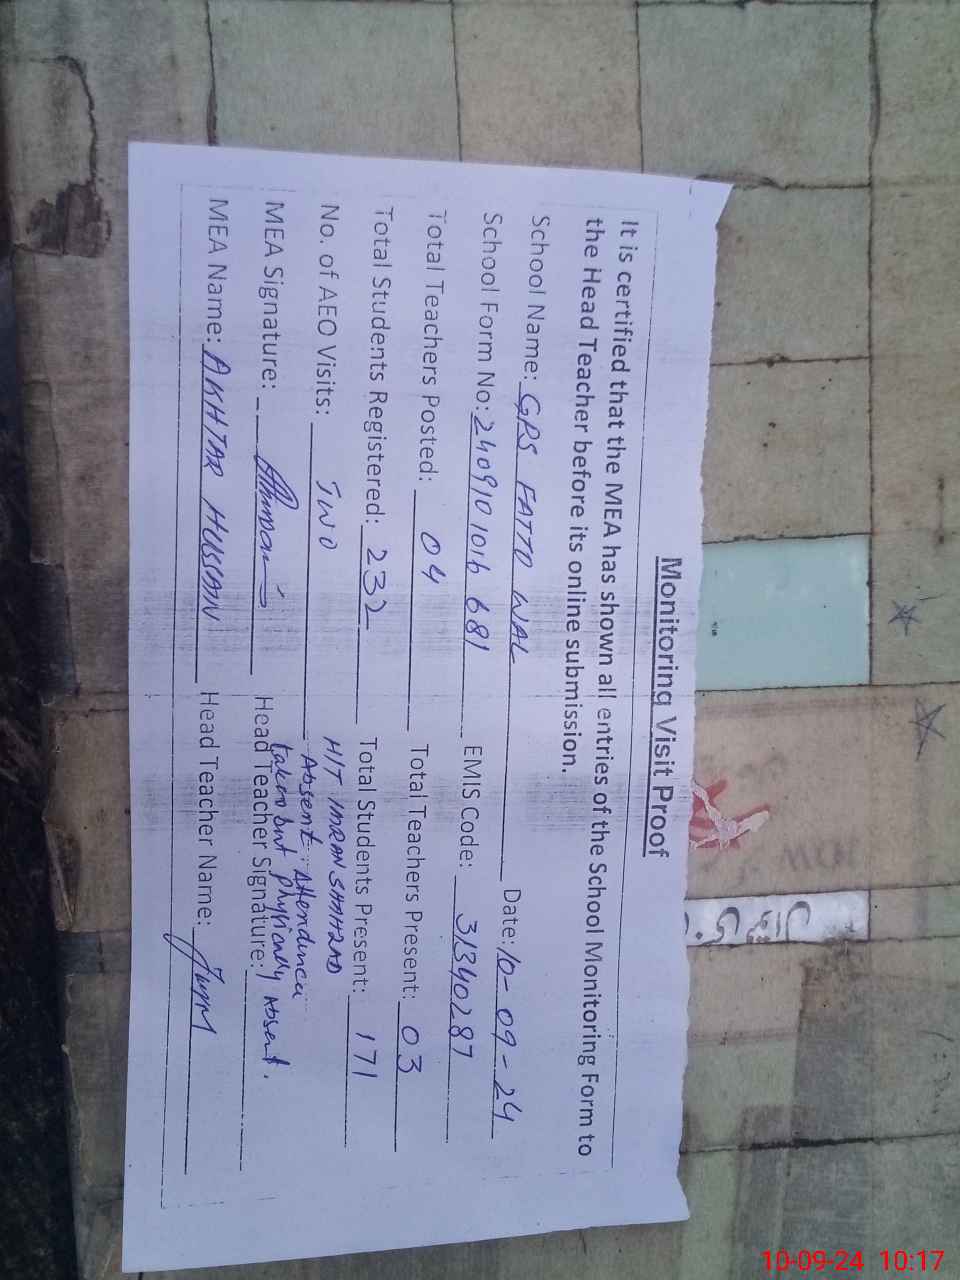 Monitoring Visit Proof
It is certified that the MEA has shown all entries of the School Monitoring Form to
the Head Teacher before its online submission.
School Name: GPS FATTO WAL Date: 10-09-24
School Form No: 240910 1016 681 EMIS Code: 31340287
Total Teachers Posted: 04 Total Teachers Present: 03
Total Students Registered: 232 Total Students Present: 171
No. of AEO Visits: TWO
HIT IMRAN SHAHZAD
Absent: Attendance
taken but physically Absent.
MEA Signature: Head Teacher Signature:
MEA Name: AKHTAR HUSSAIN Head Teacher Name:
10-09-24 10:17